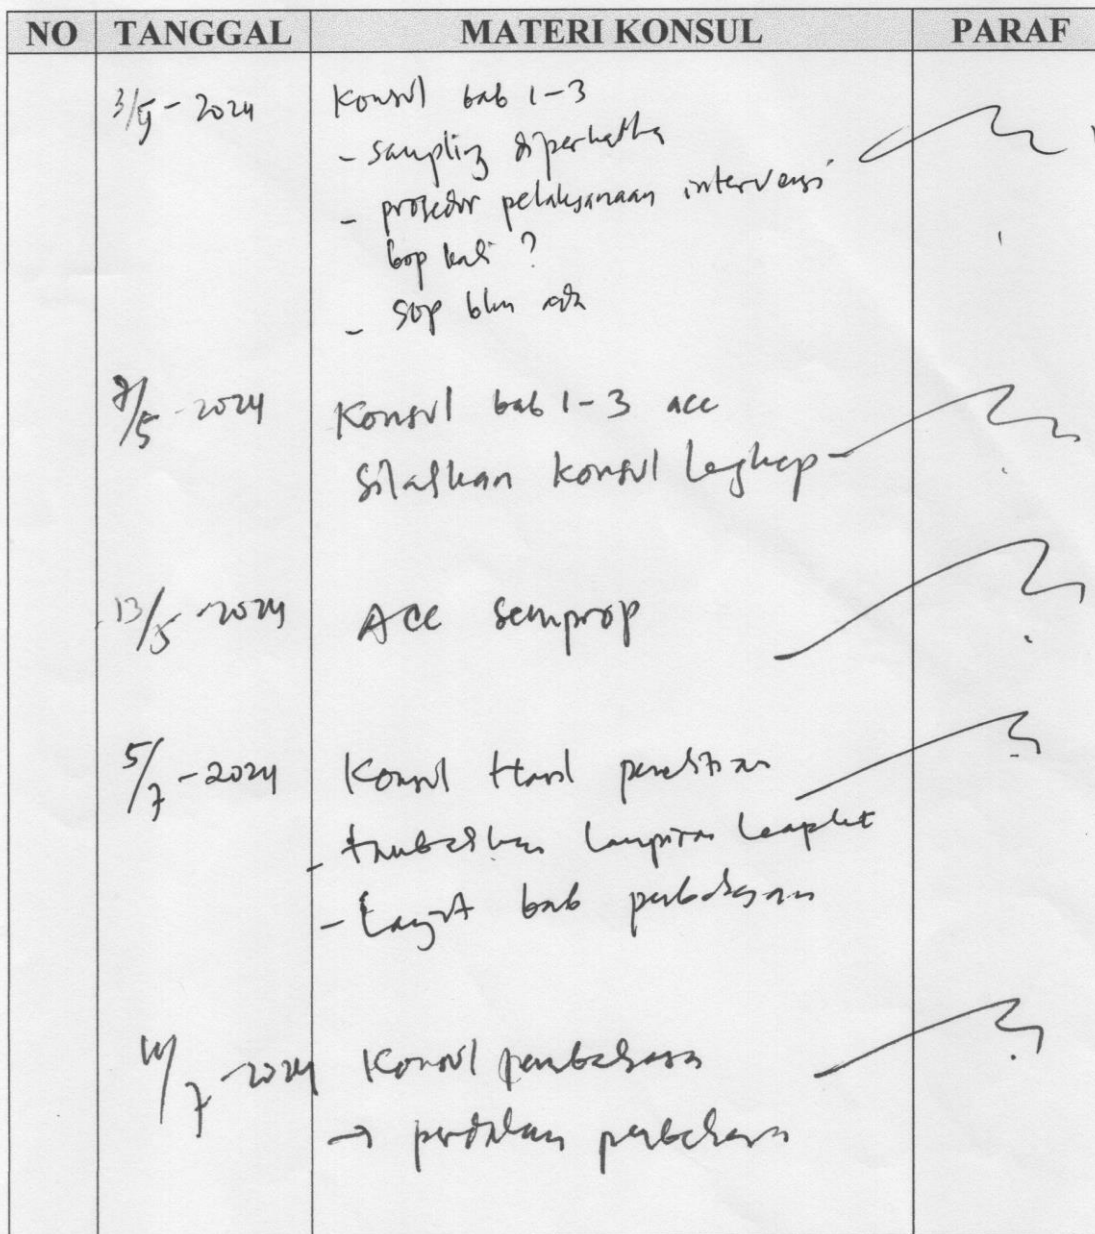 NO TANGGAL MATERI KONSUL PARAF
3/5 - 2024 Konsul bab 1-3
- sampling diperhatka
- prosedur pelaksanaan intervensi
brp kali ?
- SOP blm ada
7/5 - 2024 Konsul bab 1-3 acc
Silahkan konsul Lengkap
13/5 - 2024 Acc semprop
5/7 - 2024 Konsul Hasil penelitian
- tambahkan lampiran leaplet
- Lanjut bab pembahasan
/7 - 2024 Konsul pembahasan
→ perdalam pembahasan